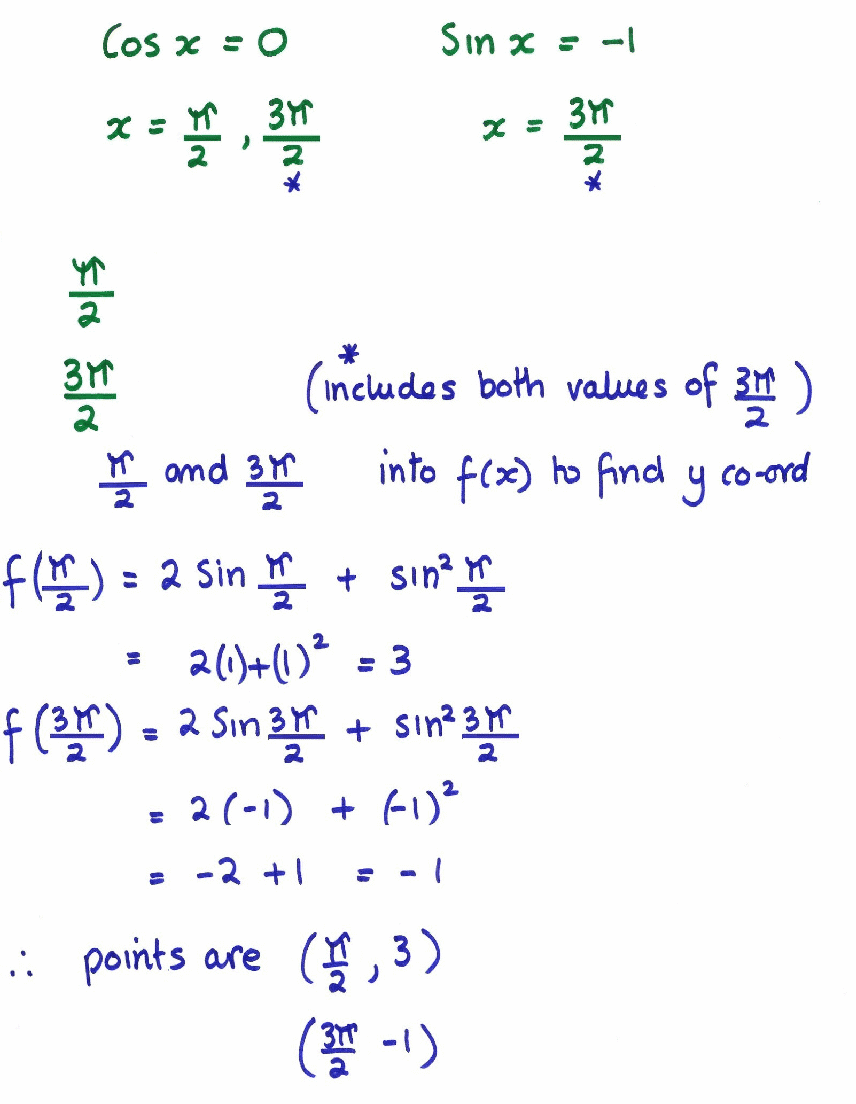 Cos x = 0 Sin x = -1
x = π/2 , 3π/2 x = 3π/2
* *
π/2
3π/2 (* includes both values of 3π/2 )
π/2 and 3π/2 into f(x) to find y co-ord
f(π/2) = 2 Sin π/2 + sin² π/2
= 2(1)+(1)² = 3
f(3π/2) = 2 Sin 3π/2 + sin² 3π/2
= 2(-1) + (-1)²
= -2 +1 = -1
∴ points are (π/2 , 3)
(3π/2 -1)